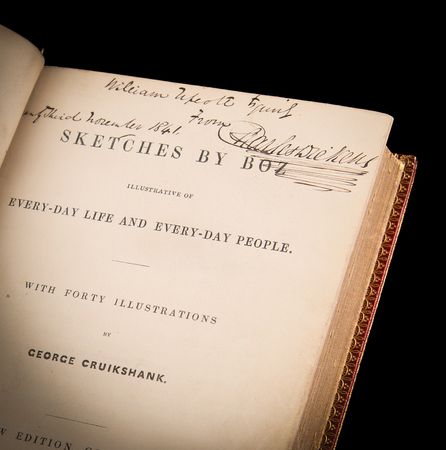 William Upcott Esquire
From
Third November 1841.
Charles Dickens
SKETCHES BY BOZ
ILLUSTRATIVE OF
EVERY-DAY LIFE AND EVERY-DAY PEOPLE.
WITH FORTY ILLUSTRATIONS
BY
GEORGE CRUIKSHANK.
EDITION